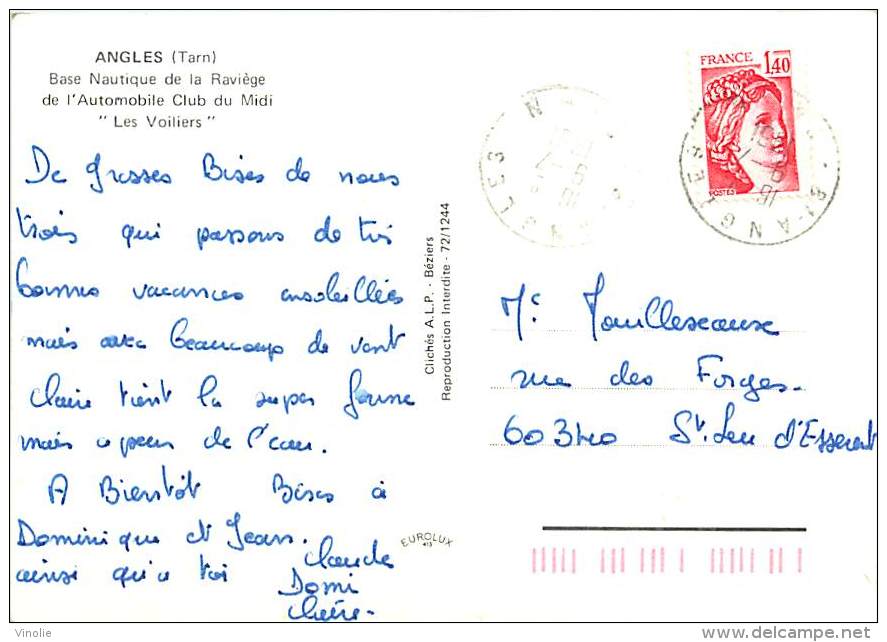 ANGLES (Tarn)
Base Nautique de la Raviège
de l'Automobile Club du Midi
" Les Voiliers "
De grosses Bises de nous
trois qui passons de très
bonnes vacances ensoleillées
mais avec beaucoup de vent
Claire tient la super forme
mais a peur de l'eau.
A Bientôt Bises à
Dominique et Jean.
ainsi qu'a toi
Claude
Domi
Claire-
Clichés A.L.P. - Béziers
Reproduction Interdite - 72/1244
EUROLUX
FRANCE 1,40
POSTES
81-ANGLES
rue des Forges-
60340 St. Leu d'Esserent
Vinolie
delcampe.net